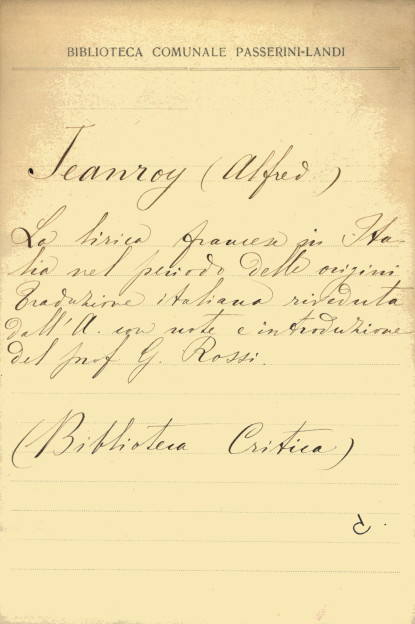 BIBLIOTECA COMUNALE PASSERINI-LANDI
Jeanroy (Alfred)
La lirica francese in Ita-
lia nel periodo delle origini
Traduzione italiana riveduta
dall'A. con note e introduzione
del prof G. Rossi.
(Biblioteca Critica)